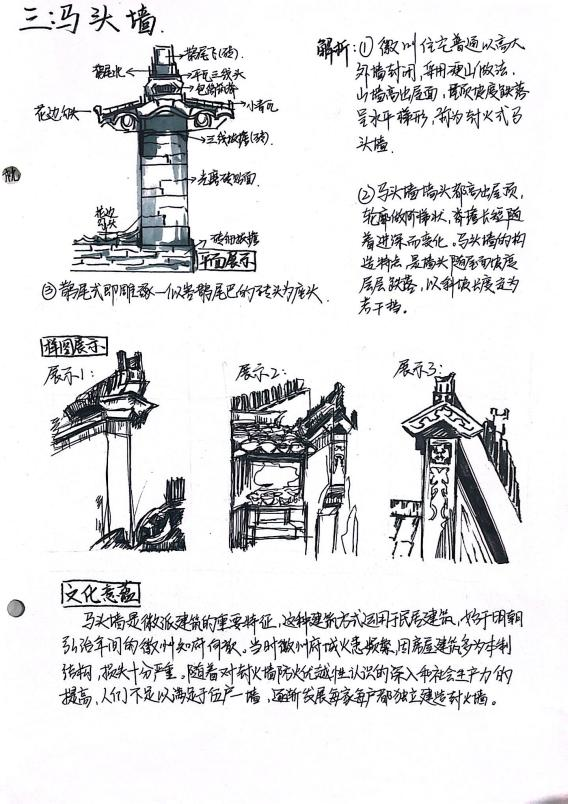 三:马头墙.
鹊尾飞(砖).
鹊尾水
平瓦三线头
小青瓦
花边勾头
三线披檐(砖).
光磨砖贴面.
花边
勾头
平面展示
③ 鹊尾式即雕琢一似喜鹊尾巴的砖头为座头.
解析:① 徽州住宅普通以高大
外墙封闭,采用硬山做法.
山墙高出屋面,
呈水平梯形,称为封火式马
头墙.
② 马头墙墙头都高出屋顶,
轮廓做阶梯状,脊檐长短随
着进深而变化.马头墙的构
造特点是墙头随屋面坡度
层层跌落,以斜坡长度定为
若干档。
样图展示
展示1:
展示2:
展示3:
文化意蕴
马头墙是徽派建筑的重要特征,这种建筑方式运用于民居建筑,始于明朝
弘治年间的徽州知府何歆.当时徽州府城火患频繁,因房屋建筑多为木制
结构,损失十分严重。随着对封火墙防火优越性认识的深入和社会生产力的
提高,人们不足以满足于伍户一墙,逐渐发展每家每户都独立建造封火墙。